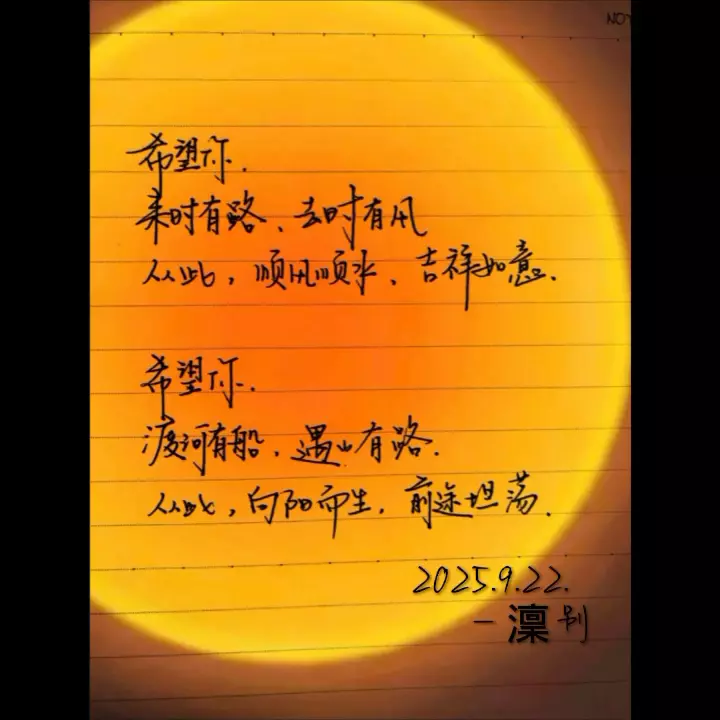 NOT
希望你.
来时有路、去时有风
从此，顺风顺水、吉祥如意.
希望你.
渡河有船，遇山有路.
从此，向阳而生，前途坦荡.
2025.9.22.
一凜别